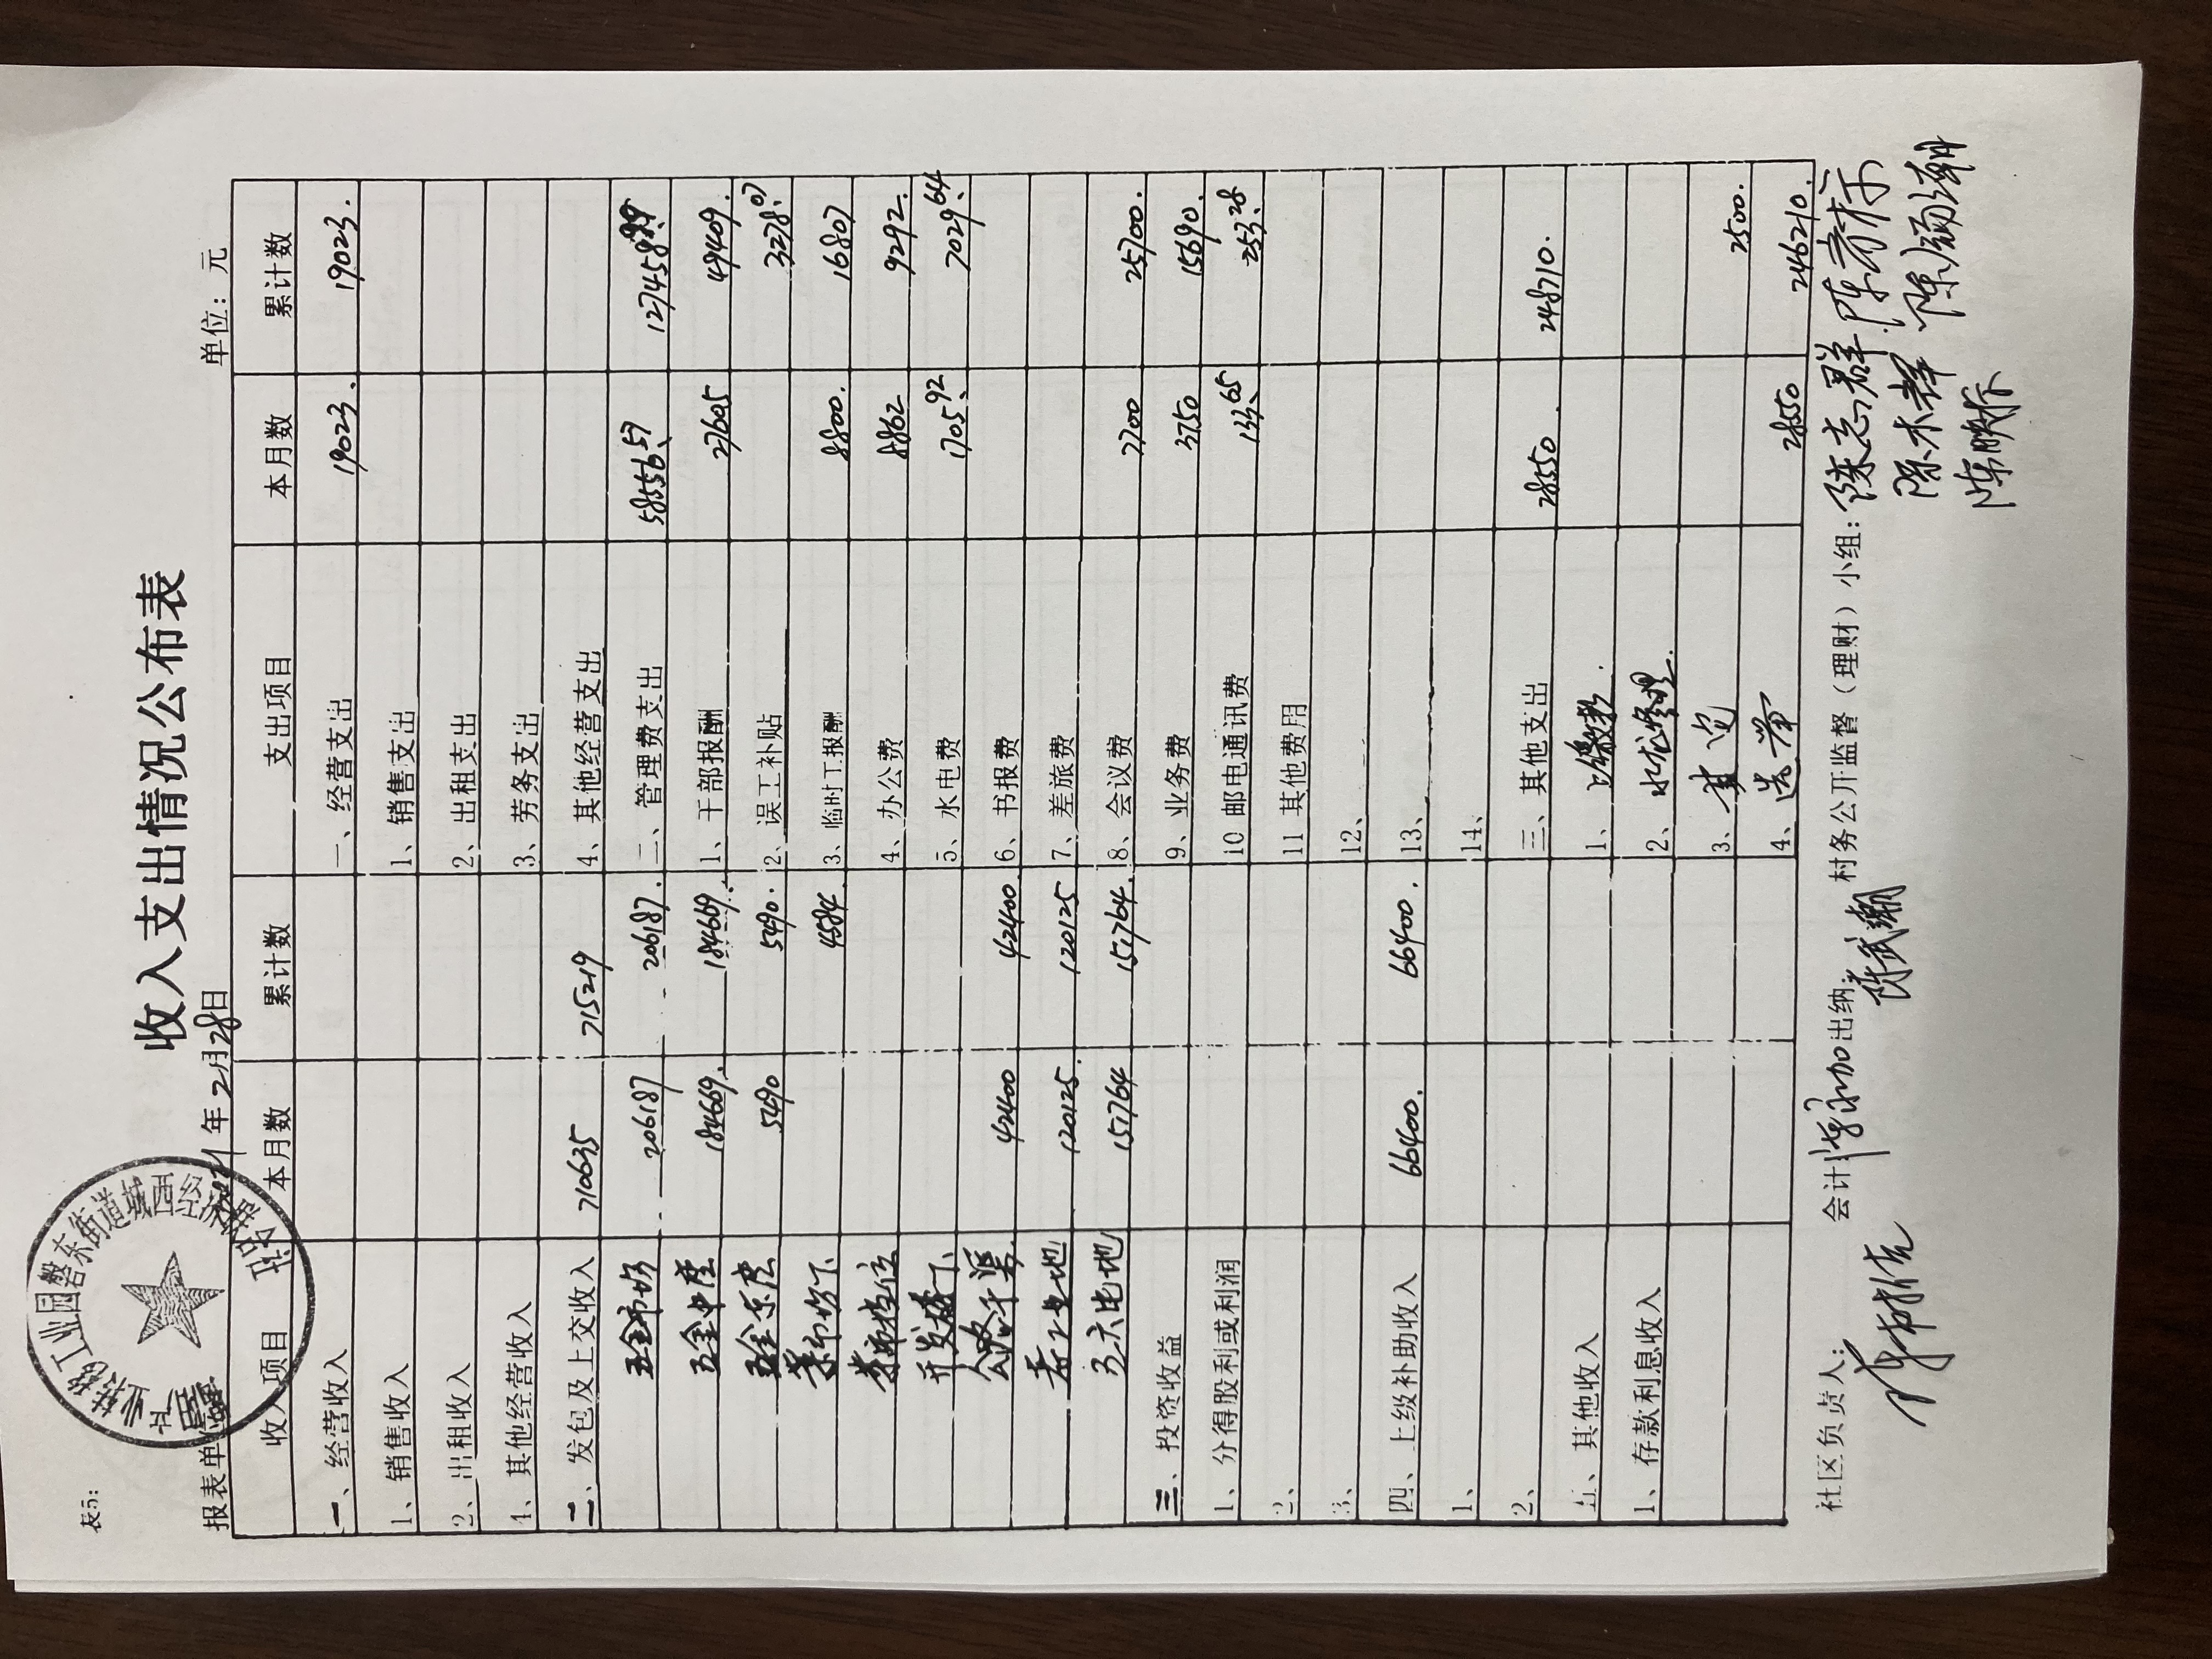 表5:
收入支出情况公布表
报表单位 2021年2月28日 单位：元
业转移工业园磐东街道城西经济联合社
收入项目 本月数 累计数 支出项目 本月数 累计数
一、经营收入 一、经营支出 19023. 19023.
1、销售收入 1、销售支出
2、出租收入 2、出租支出
3、劳务支出
4、其他经营收入
二、发包及上交收入 710635 715219 4、其他经营支出
五金市场 206187 206187. 二、管理费支出 58556.57 127458.99
五金中座 184669. 184669. 1、干部报酬 27605 49409.
五金东座 5490 5490. 2、误工补贴 3278.07
菜市场下 4584 3、临时工报酬 8800. 16807
菜市档位 4、办公费 8862 9292.
开发楼下 5、水电费 1705.92 7029.64
42400 42400. 6、书报费
120125. 120125 7、差旅费
157764 157764. 8、会议费 2700 25700.
三、投资收益 9、业务费 3750 15690.
1、分得股利或利润 10 邮电通讯费 133.65 253.28
2、 11 其他费用
3、 12、
四、上级补助收入 66400. 66400. 13、
1、 14、
2、 三、其他支出 28550. 248710.
五、其他收入 1、上缴款.
1、存款利息收入 2、水龙修理.
3、 2500.
4、 28550 246210.
社区负责人： 会计： 出纳： 陈武潮 村务公开监督（理财）小组：陈志群
陈木群